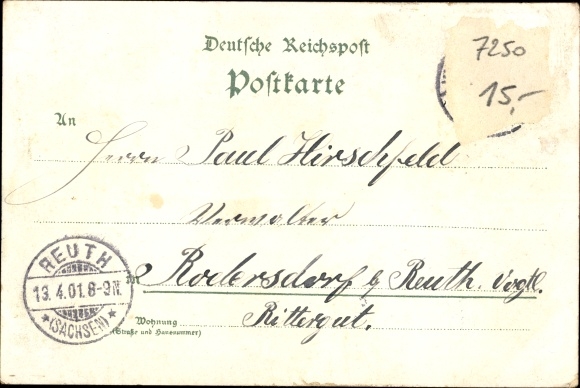 Deutsche Reichspost
Postkarte
7250
15,-
An
Herrn Paul Hirschfeld
Verwalter
in Rodersdorf b Reuth. Vogtl.
Rittergut.
Wohnung
(Straße und Hausnummer)
REUTH
13.4.01.8-9N.
*(SACHSEN)*